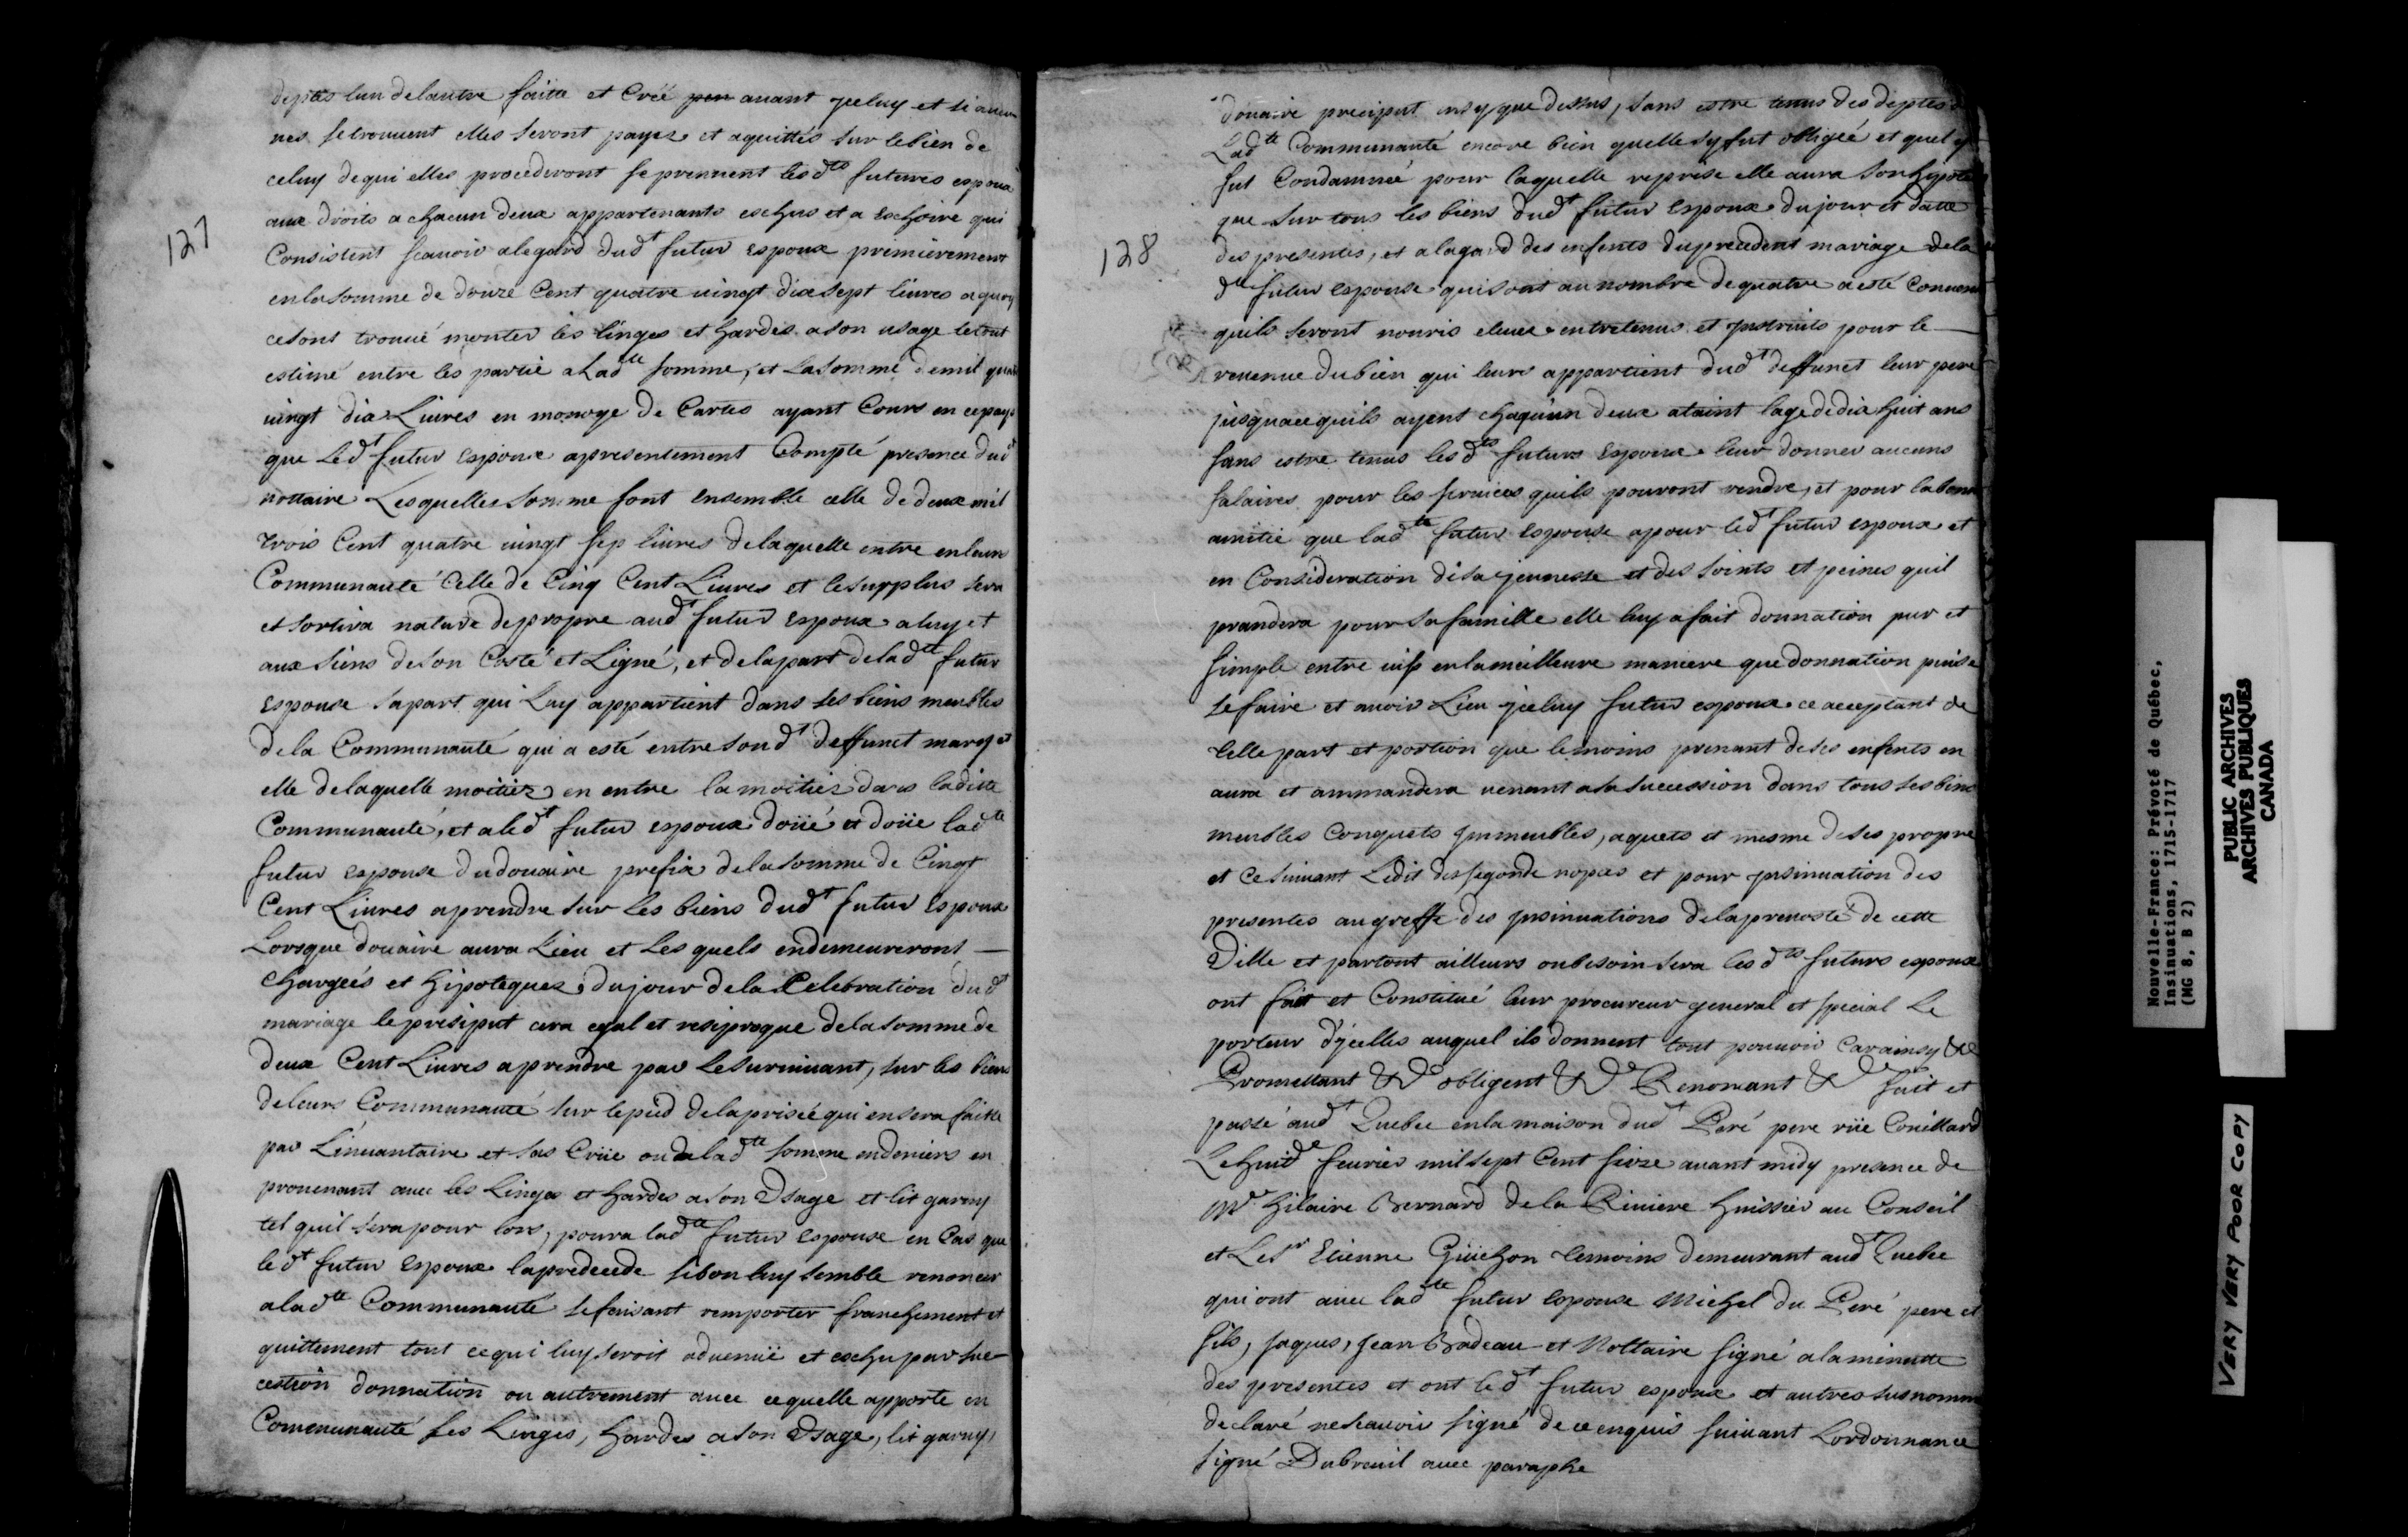 127
deptes lun delautre faitte et Créé per avant yceluy et si aucu
nes se trouvent elles seront payes et aquittés sur le bien de
celuy de qui elles procederont se prennent lesdts futures espoux
aux droits a chacun deux appartenants eschus et a Eschoire qui
Consistent scavoir alegard dudt futur Espoux premierement
en la somme de douze Cent quatre vingt dix sept livres a quoy
ce sont trouvé monter les linges et hardes a son usage le tout
estimé entre les partie a Ladtte somme, et la somme de mil quatre
vingt dix Livres en monoye de Cartes ayant Cours en ce pays
que Ledt futur Espoux a presentement Compté presence dudt
nottaire Lesquelles somme font ensemble celle de deux mil
trois Cent quatre vingt sep livres de laquelle entre en leur
Communauté Celle de Cinq Cent Livres et le supplus sera
et sortira nature de propre audt futur Espoux a luy et
aux siens de son Costé et Ligné, et de la part de ladtte futur
Espouse sa part qui Luy appartient dans les biens meubles
de la Communauté qui a esté entre sondt deffunct mary et
elle de laquelle moitiez en entre la moitiez dans ladite
Communauté, et a ledt futur espoux doüé et doüe ladte
futur espouse du douaire prefix de la somme de Cingt
Cent Livres a prendre sur les biens dudt futur Espoux
Lorsque douaire aura Lieu et les quels en demeureront
Chargées et hipoteques du jour de la Celebration dudt
mariage le presiput cera egal et resiproque de la somme de
deux Cent Livres a prendre par le survivant, sur les biens
de leurs Communauté sur le pied de la prisée qui en sera faitte
par Linvantaire et sas Criie ou de ladtte somme en deniers en
provenant avec les Linges et hardes a son Usage et lit garny
tel quil sera pour lors, poura ladtte futur Espouse en Cas que
ledt futur Espoux la predecede si bon luy semble renoncer
a ladtte Communauté se faisant remporter franchement et
quittement tout ce qui luy seroit advenüe et eschu par suc
cestion donnation ou autrement avec ce quelle apporte en
Communauté ses Linges, hardes a son Usage, lit garny,
128
douaire preciput insy que dessus, sans estre tenus des deptes de
Ladtte Communauté encore bien quelle sy fut obligée et quel y
fut Condamnée pour laquelle reprise elle aura son hipote
que sur tous les biens dudt futur Espoux du jour et datte
des presentes, et a legard des enfents du precedent mariage de la
dte futur espouse qui sont au nombre de quatre a esté Convenu
quils seront nouris eleve entretenus et Instruits pour le
revenue du bien qui leurs appartient dudt deffunct leur pere
jusqua ce quils ayent chaquun deux ataint lage de dix huit ans
sans estre tenus lesdts futurs Espoux leur donner aucuns
salaires pour les services quils pouront rendre, et pour la bonne
amitié que ladtte futur Espouse a pour ledt futur espoux et
en Consideration de sa jeunesse et des soints et peines quil
prandera pour sa famille elle luy a fait donnation pur et
simple entre vifs en la meilleure maniere que donnation puise
se faire et avoir Lieu yceluy futur espoux ce acceptant de
telle part et portion que le moins prenant de ses enfents en
aura et ammandera venant a sa sucession dans tous ses bins
meubles Conquets Immeubles, aquets et mesme de ses propre
et Ce suivant Ledit des segonde nopces et pour Insinuation des
presentes au greffe des Insinuations de la prevosté de cette
Ville et partout ailleurs ou besoin sera lesdts futurs espoux
ont fait et Constitué leur procureur general et special Le
porteur dycelles auquel ils donnent tout pouvoir Car ainsy &c
Promettant &c obligent &c Renonsant &c fait et
passé audt Quebec en la maison dudt Peré pere rüe Couillard
Le huitde fevrier mil sept Cent seize avant midy presence de
Me hilaire Bernard de la Riviere huissier au Conseil
et Le Sr Etienne Guichon temoins demeurant audt Quebec
qui ont avec ladtte futur espouse Michel du Peré pere et
fils, Jaques, Jean Badeau et Nottaire signé a la minutte
des presentes et ont ledt futur espoux et autres susnomm
declaré ne scavoir signé de ce enquis suivant Lordonnance
signé Dubreuil avec paraphe
Nouvelle-France: Prévôté de Québec,
Insinuations, 1715-1717
(MG 8, B 2)
PUBLIC ARCHIVES
ARCHIVES PUBLIQUES
CANADA
VERY VERY POOR COPY